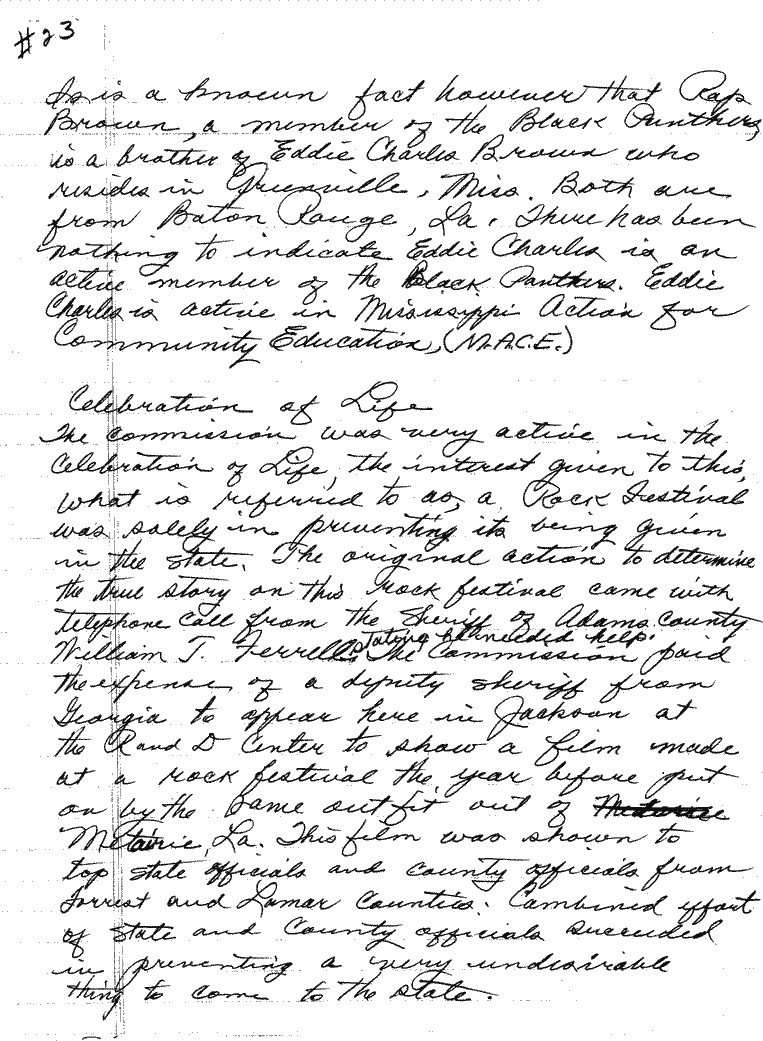 #23
Is is a known fact however that Rap
Brown, a member of the Black Panthers,
is a brother of Eddie Charles Brown who
resides in Greenville, Miss. Both are
from Baton Rouge, La. There has been
nothing to indicate Eddie Charles is an
active member of the Black Panthers. Eddie
Charles is active in Mississippi Action for
Community Education, (M.A.C.E.)
Celebration of Life
The commission was very active in the
Celebration of Life, the interest given to this,
what is referred to as, a Rock Festival
was solely in preventing its being given
in the state. The original action to determine
the true story on this rock festival came with
telephone call from the Sheriff of Adams County
stating he needed help.
William T. Ferrell. The Commission paid
the expense of a deputy sheriff from
Georgia to appear here in Jackson at
the R and D Center to show a film made
at a rock festival the year before put
on by the same outfit out of
Metairie, La. This film was shown to
top state officials and county officials from
Forrest and Lamar Counties. Combined effort
of State and County officials succeeded
in preventing a very undesirable
thing to come to the state.